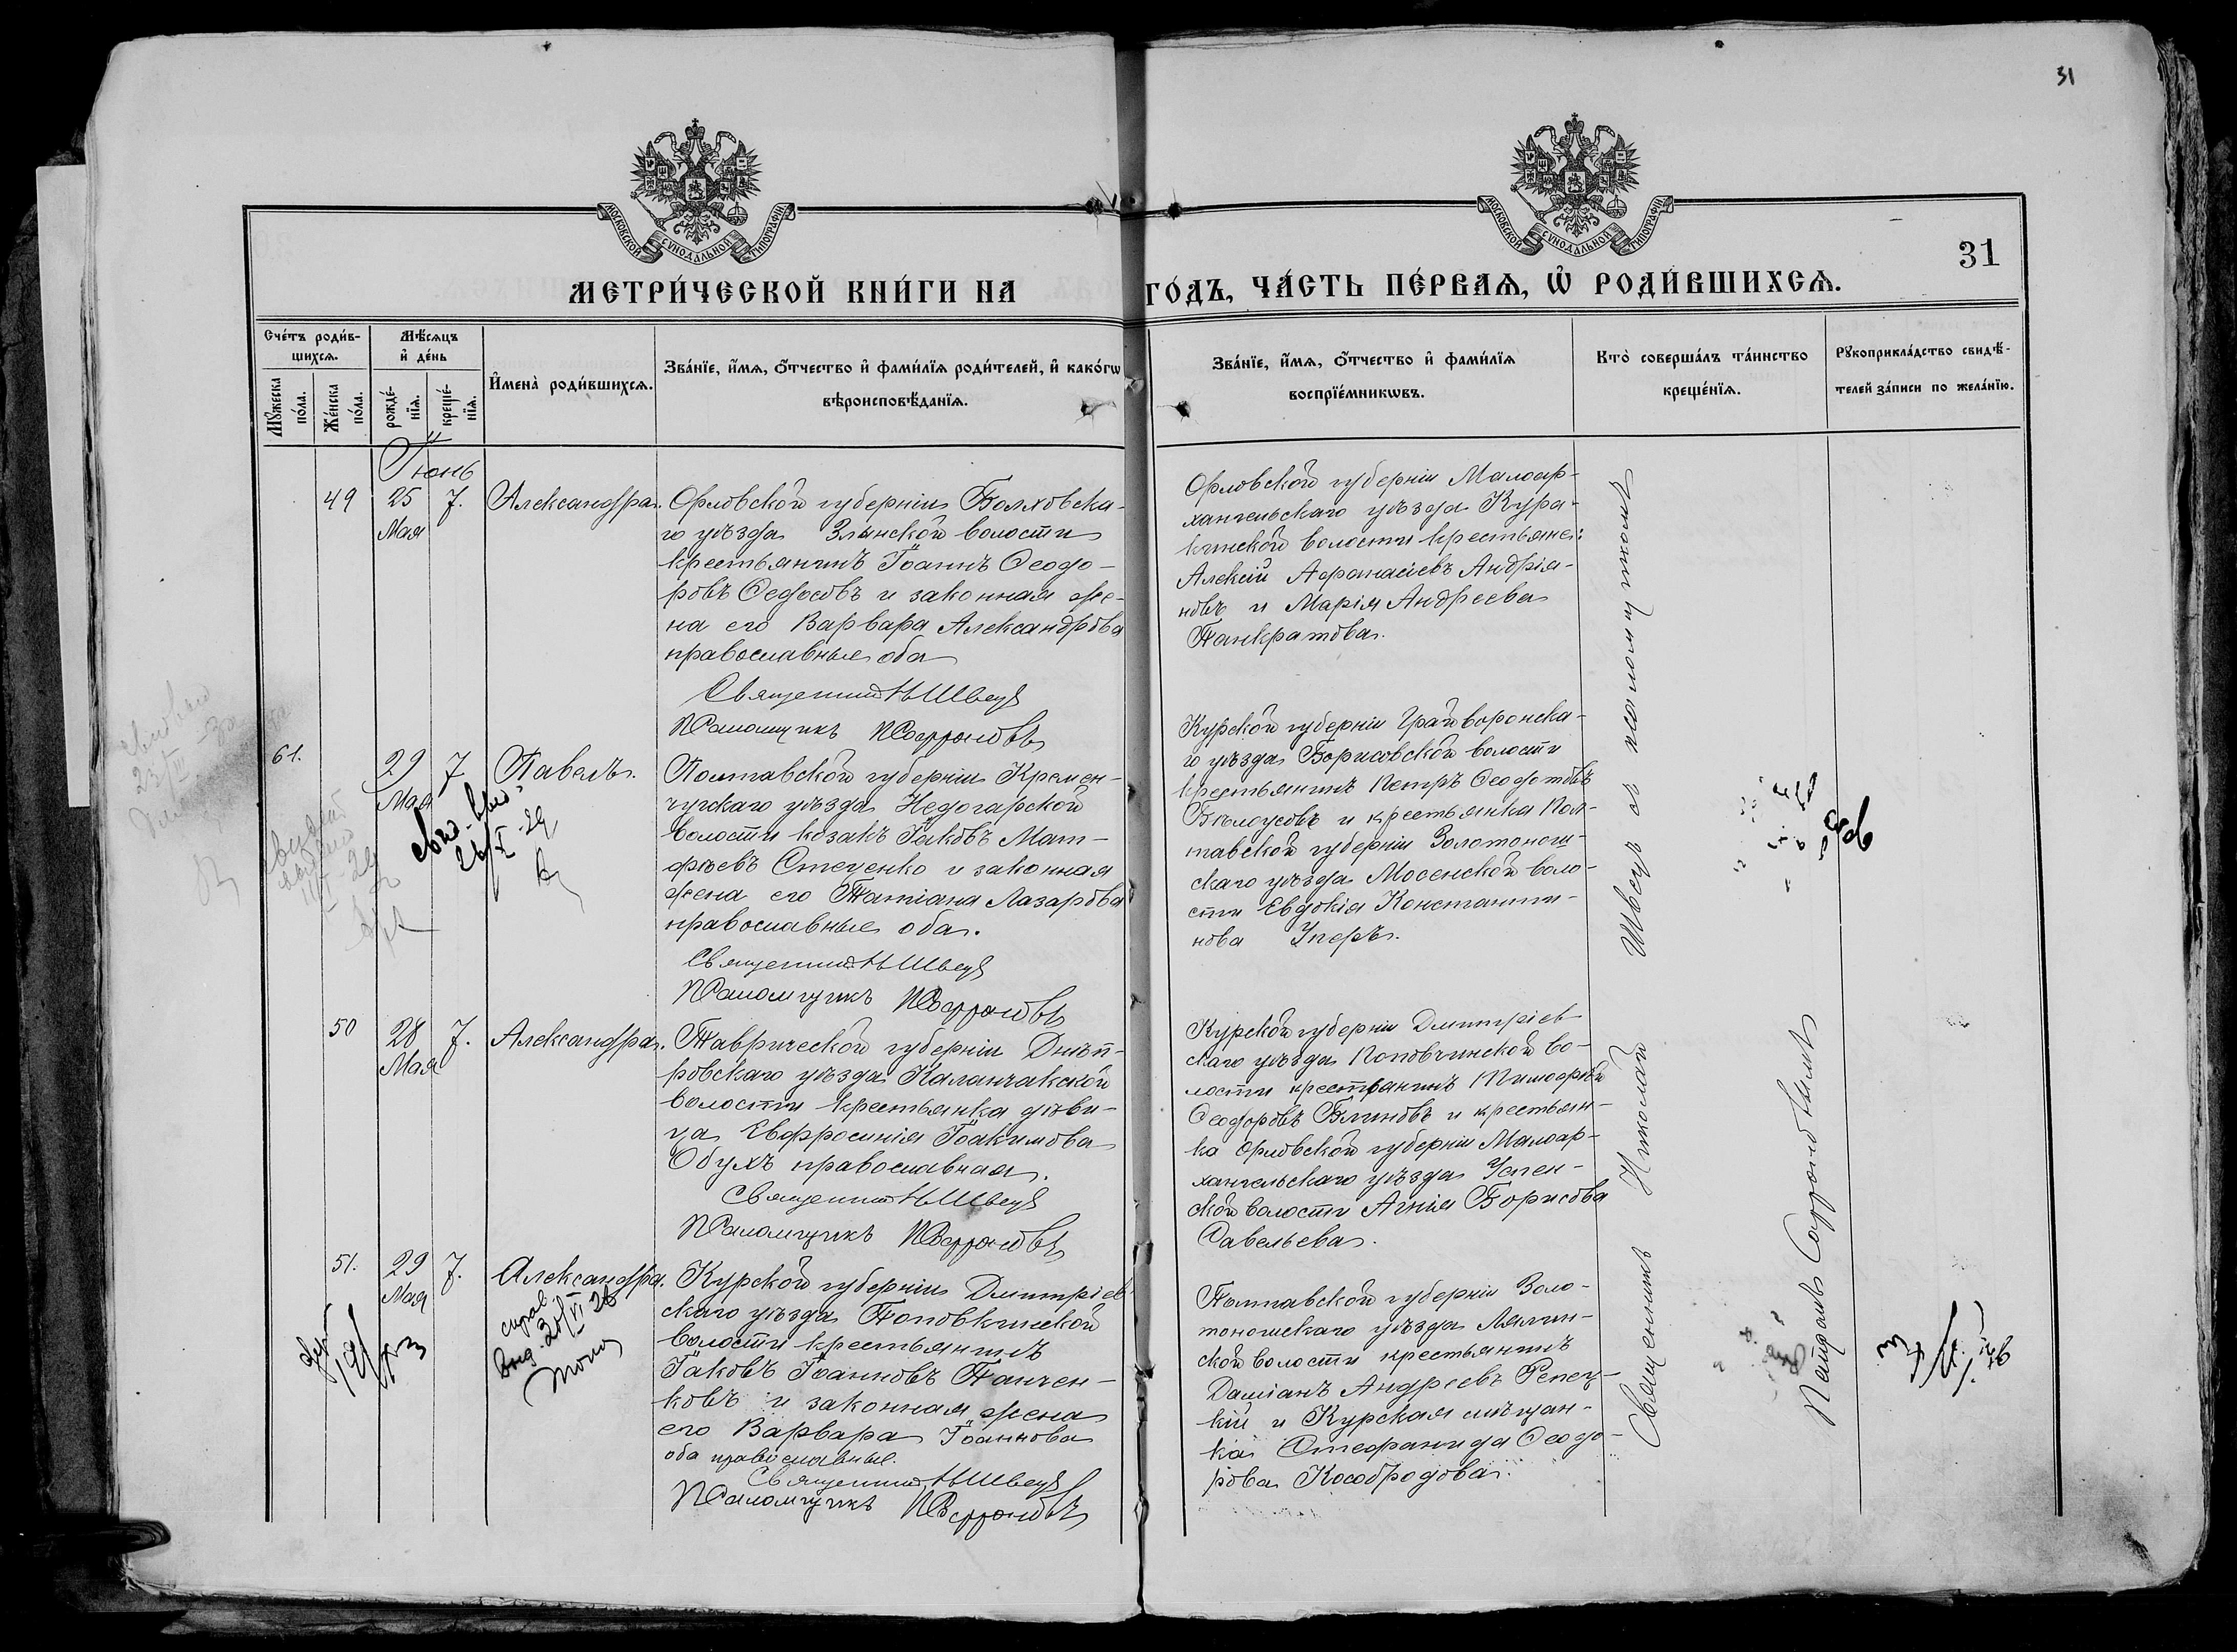 31
МОСКОВСКОЙ СѴНОДАЛЬНОЙ ТИПОГРАФІИ
МОСКОВСКОЙ СѴНОДАЛЬНОЙ ТИПОГРАФІИ
31
МЕТРИ́ЧЕСКОЙ КНИ́ГИ НА ГО́ДЪ, ЧА́СТЬ ПЕ́РВАѦ, Ѡ҆ РОДИ́ВШИХСѦ.
Сче́тъ роди́в-
шихсѧ.
Мꙋжеска
по́ла.
Же́нска
по́ла.
Мѣ́сѧцъ
и҆ де́нь
рожде́-
нїѧ.
креще́-
нїѧ.
И҆мена̀ роди́вшихсѧ.
Зва́нїе, и҆́мѧ, ѻ҆́тчество и҆ фами́лїѧ роди́телей, и҆ како́гѡ
вѣроисповѣ́данїѧ.
Зва́нїе, и҆́мѧ, ѻ҆́тчество и҆ фами́лїѧ
воспрїе́мникѡвъ.
Кто̀ соверша́лъ та́инство
креще́нїѧ.
Рꙋкоприкла́дство свидѣ́-
телей за́писи по жела́нїю.
Іюнь
49 25 7. Александра.
Мая
Орловской губерніи Болховска-
го уѣзда Злынской волости
крестьянинъ Іоаннъ Ѳеодо-
ровъ Ѳедосовъ и законная же-
на его Варвара Александрова
православные оба
Священникъ Н Швецъ
Псаломщикъ П Сафроновъ
Орловской губерніи Малоар-
хангельскаго уѣзда Кура-
кинской волости крестьяне:
Алексій Аѳанасіевъ Андрія-
новъ и Марія Андреева
Панкратова.
61. 29 7 Павелъ.
Мая
Полтавской губерніи Кремен-
чугскаго уѣзда Недогарской
волости козакъ Іаковъ Мат-
фѣевъ Стеценко и законная
жена его Татіана Лазарова
православные оба.
Священникъ Н Швецъ
Псаломщикъ П Сафроновъ
Курской губерніи Грайворонска-
го уѣзда Борисовской волости
крестьянинъ Петръ Ѳеодотовъ
Бѣлоусовъ и крестьянка Пол-
тавской губерніи Золотонош-
скаго уѣзда Мосенской воло-
сти Евдокія Константи-
нова
50 28 7. Александра.
Мая
Таврической губерніи Днѣп-
ровскаго уѣзда Каланчакской
волости крестьянка дѣви-
ца Евфросинія Іоакимова
Обухъ православная.
Священникъ Н Швецъ
Псаломщикъ П Сафроновъ
Курской губерніи Дмитріев-
скаго уѣзда Поповкинской во-
лости крестьянинъ Тимоѳей
Ѳеодоровъ Блиновъ и крестьян-
ка Орловской губерніи Малоар-
хангельскаго уѣзда Успен-
ской волости Агнія Борисова
Савельева.
51. 29 7. Александра.
Мая
Курской губерніи Дмитріев-
скаго уѣзда Поповкинской
волости крестьянинъ
Іаковъ Іоанновъ Панчен-
ковъ и законная жена
его Варвара Іоаннова
оба православные.
Священникъ Н Швецъ
Псаломщикъ П Сафроновъ
Полтавской губерніи Золо-
тоношскаго уѣзда Лялин-
ской волости крестьянинъ
Даміанъ Андреевъ Репец-
кій и Курская мѣщан-
ка Стефанида Ѳеодо-
рова Кособродова.
Священникъ Николай Швецъ съ псаломщикомъ
Сафроновымъ